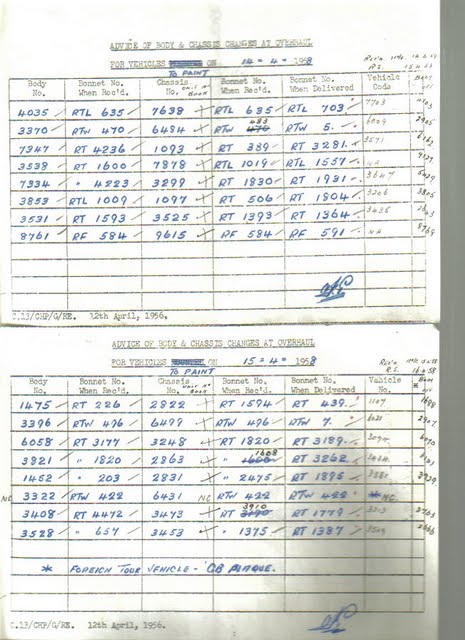 ADVICE OF BODY & CHASSIS CHANGES AT OVERHAUL
FOR VEHICLES ON 14 - 4 - 1958
TO PAINT
Body No. Bonnet No. When Rec'd. Chassis No. Bonnet No. When Rec'd. Bonnet No. When Delivered Vehicle Code
4035 RTL 635 7638 RTL 635 RTL 703 7703
3370 RTW 470 6484 483 RTW 5.
7347 RT 4236 1093 RT 389 RT 3281 3571
3538 RT 1600 7878 RTL 1019 RTL 1557 NA
7334 " 4223 3299 RT 1830 RT 1931 3647
3853 RTL 1009 1097 RT 506 RT 1804 3206
3531 RT 1593 3525 RT 1393 RT 1364 3435
8761 RF 584 9615 RF 584 RF 591 NA
C.13/CHP/G/RE. 12th April, 1956.
ADVICE OF BODY & CHASSIS CHANGES AT OVERHAUL
FOR VEHICLES ON 15 - 4 - 1958
TO PAINT
Body No. Bonnet No. When Rec'd. Chassis No. Bonnet No. When Rec'd. Bonnet No. When Delivered Vehicle No.
1475 RT 226 2822 RT 1594 RT 439 1107
3396 RTW 496 6499 RTW 496 RTW 7.
6058 RT 3177 3248 RT 1820 RT 3189
3821 " 1820 2863 " 1608 RT 3262
1452 " 203 2831 " 2475 RT 1895
NC 3322 RTW 422 6431 NC RTW 422 RTW 422 * NC
3408 RT 4472 3473 RT 3910 RT 1779
3528 " 657 3453 " 1375 RT 1387
* FOREIGN TOUR VEHICLE - GB PLAQUE.
C.13/CHP/G/RE. 12th April, 1956.